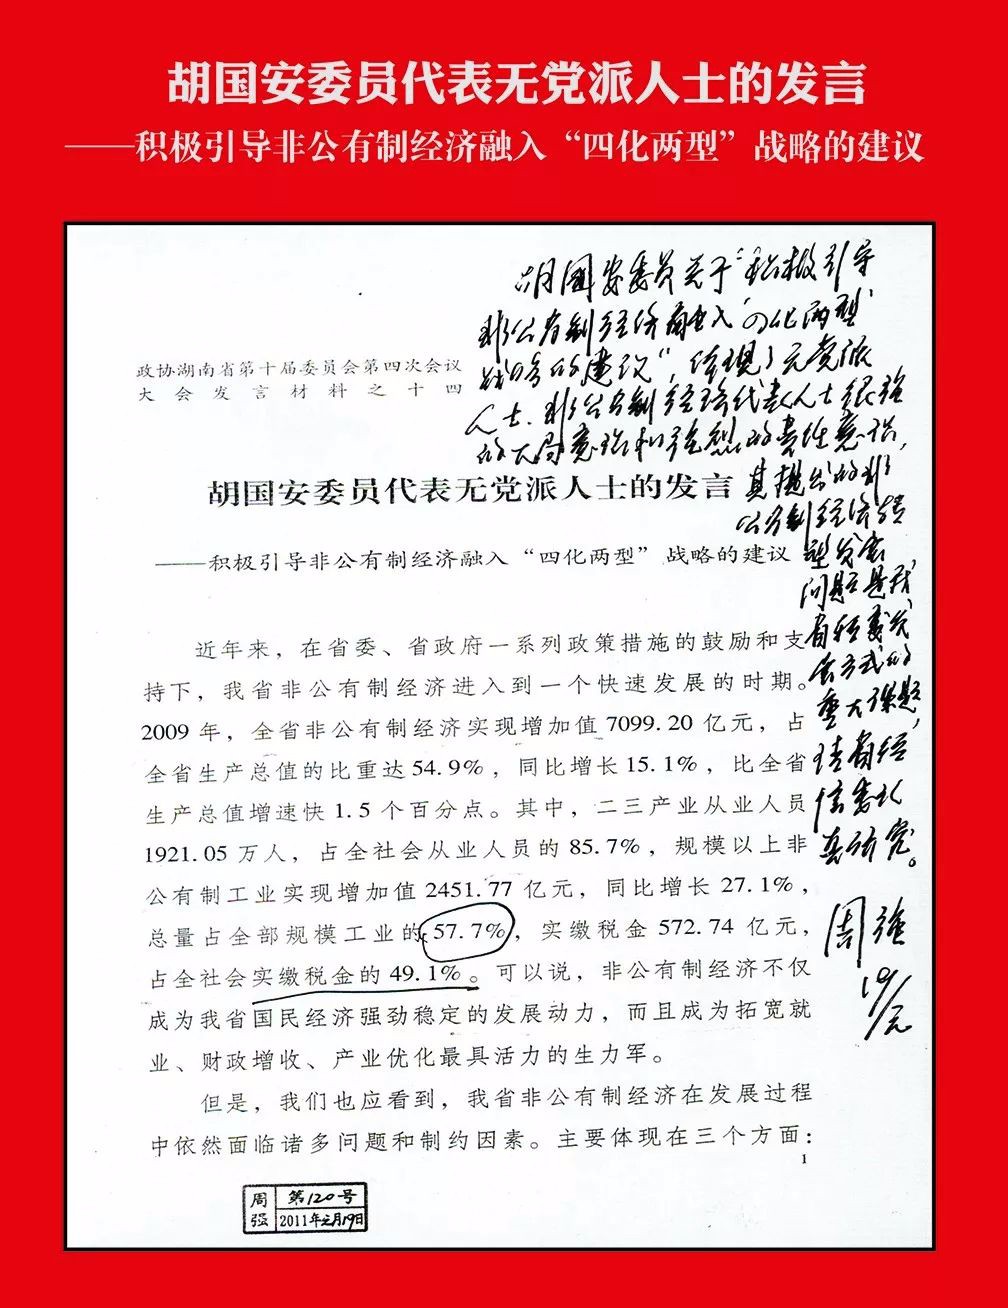 胡国安委员代表无党派人士的发言
——积极引导非公有制经济融入“四化两型”战略的建议
胡国安委员关于“积极引导
非公有制经济融入“四化两型”
战略的建议”,体现了无党派
人士、非公有制经济代表人士很强
的大局意识和强烈的责任意识,
其提出的非
公有制经济转
型发展
问题是我
省转变发
展方式的
重大课题,
请省经
信委认
真研究。
周强
19/元
政协湖南省第十届委员会第四次会议
大会发言材料之十四
胡国安委员代表无党派人士的发言
——积极引导非公有制经济融入“四化两型”战略的建议
近年来，在省委、省政府一系列政策措施的鼓励和支
持下，我省非公有制经济进入到一个快速发展的时期。
2009年，全省非公有制经济实现增加值7099.20亿元，占
全省生产总值的比重达54.9%，同比增长15.1%，比全省
生产总值增速快1.5个百分点。其中，二三产业从业人员
1921.05万人，占全社会从业人员的85.7%，规模以上非
公有制工业实现增加值2451.77亿元，同比增长27.1%，
总量占全部规模工业的57.7%，实缴税金572.74亿元，
占全社会实缴税金的49.1%。可以说，非公有制经济不仅
成为我省国民经济强劲稳定的发展动力，而且成为拓宽就
业、财政增收、产业优化最具活力的生力军。
但是，我们也应看到，我省非公有制经济在发展过程
中依然面临诸多问题和制约因素。主要体现在三个方面：
1
周强
第120号
2011年元月19日